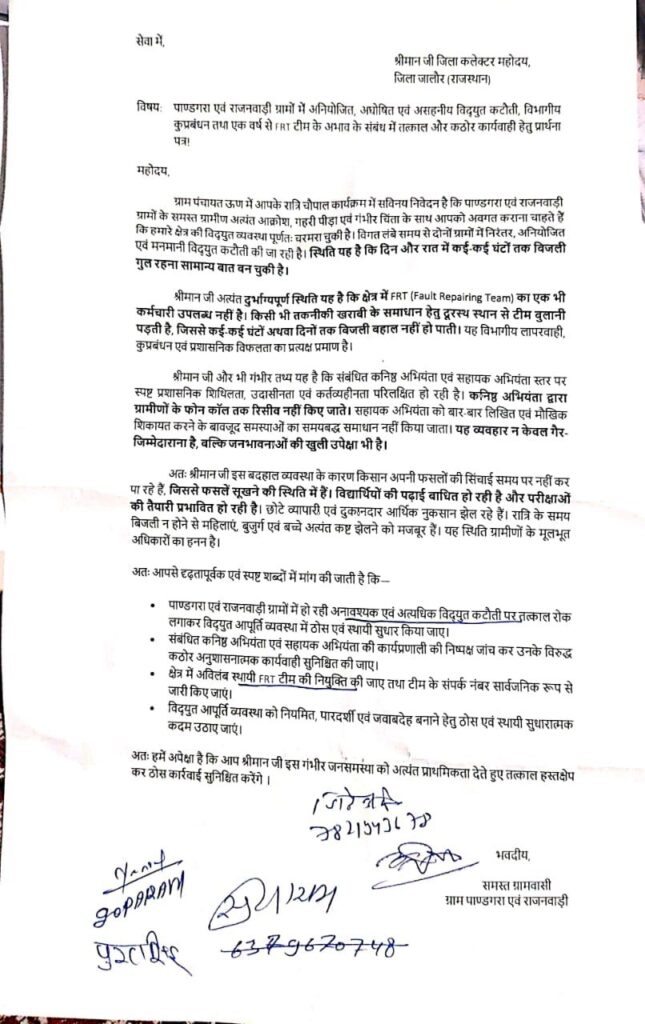 सेवा में,
श्रीमान जी जिला कलेक्टर महोदय,
जिला जालौर (राजस्थान)
विषय: पाण्डगरा एवं राजनवाड़ी ग्रामों में अनियोजित, अघोषित एवं असहनीय विद्युत कटौती, विभागीय
कुप्रबंधन तथा एक वर्ष से FRT टीम के अभाव के संबंध में तत्काल और कठोर कार्यवाही हेतु प्रार्थना
पत्र!
महोदय,
ग्राम पंचायत ऊण में आपके रात्रि चौपाल कार्यक्रम में सविनय निवेदन है कि पाण्डगरा एवं राजनवाड़ी
ग्रामों के समस्त ग्रामीण अत्यंत आक्रोश, गहरी पीड़ा एवं गंभीर चिंता के साथ आपको अवगत कराना चाहते हैं
कि हमारे क्षेत्र की विद्युत व्यवस्था पूर्णतः चरमरा चुकी है। विगत लंबे समय से दोनों ग्रामों में निरंतर, अनियोजित
एवं मनमानी विद्युत कटौती की जा रही है। स्थिति यह है कि दिन और रात में कई-कई घंटों तक बिजली
गुल रहना सामान्य बात बन चुकी है।
श्रीमान जी अत्यंत दुर्भाग्यपूर्ण स्थिति यह है कि क्षेत्र में FRT (Fault Repairing Team) का एक भी
कर्मचारी उपलब्ध नहीं है। किसी भी तकनीकी खराबी के समाधान हेतु दूरस्थ स्थान से टीम बुलानी
पड़ती है, जिससे कई-कई घंटों अथवा दिनों तक बिजली बहाल नहीं हो पाती। यह विभागीय लापरवाही,
कुप्रबंधन एवं प्रशासनिक विफलता का प्रत्यक्ष प्रमाण है।
श्रीमान जी और भी गंभीर तथ्य यह है कि संबंधित कनिष्ठ अभियंता एवं सहायक अभियंता स्तर पर
स्पष्ट प्रशासनिक शिथिलता, उदासीनता एवं कर्तव्यहीनता परिलक्षित हो रही है। कनिष्ठ अभियंता द्वारा
ग्रामीणों के फोन कॉल तक रिसीव नहीं किए जाते। सहायक अभियंता को बार-बार लिखित एवं मौखिक
शिकायत करने के बावजूद समस्याओं का समयबद्ध समाधान नहीं किया जाता। यह व्यवहार न केवल गैर-
जिम्मेदाराना है, बल्कि जनभावनाओं की खुली उपेक्षा भी है।
अतः श्रीमान जी इस बदहाल व्यवस्था के कारण किसान अपनी फसलों की सिंचाई समय पर नहीं कर
पा रहे हैं, जिससे फसलें सूखने की स्थिति में हैं। विद्यार्थियों की पढ़ाई बाधित हो रही है और परीक्षाओं
की तैयारी प्रभावित हो रही है। छोटे व्यापारी एवं दुकानदार आर्थिक नुकसान झेल रहे हैं। रात्रि के समय
बिजली न होने से महिलाएं, बुजुर्ग एवं बच्चे अत्यंत कष्ट झेलने को मजबूर हैं। यह स्थिति ग्रामीणों के मूलभूत
अधिकारों का हनन है।
अतः आपसे दृढ़तापूर्वक एवं स्पष्ट शब्दों में मांग की जाती है कि—
• पाण्डगरा एवं राजनवाड़ी ग्रामों में हो रही अनावश्यक एवं अत्यधिक विद्युत कटौती पर तत्काल रोक
लगाकर विद्युत आपूर्ति व्यवस्था में ठोस एवं स्थायी सुधार किया जाए।
• संबंधित कनिष्ठ अभियंता एवं सहायक अभियंता की कार्यप्रणाली की निष्पक्ष जांच कर उनके विरुद्ध
कठोर अनुशासनात्मक कार्यवाही सुनिश्चित की जाए।
• क्षेत्र में अविलंब स्थायी FRT टीम की नियुक्ति की जाए तथा टीम के संपर्क नंबर सार्वजनिक रूप से
जारी किए जाएं।
• विद्युत आपूर्ति व्यवस्था को नियमित, पारदर्शी एवं जवाबदेह बनाने हेतु ठोस एवं स्थायी सुधारात्मक
कदम उठाए जाएं।
अतः हमें अपेक्षा है कि आप श्रीमान जी इस गंभीर जनसमस्या को अत्यंत प्राथमिकता देते हुए तत्काल हस्तक्षेप
कर ठोस कार्रवाई सुनिश्चित करेंगे ।
भवदीय,
समस्त ग्रामवासी
ग्राम पाण्डगरा एवं राजनवाड़ी
GOPARAM
6379670748